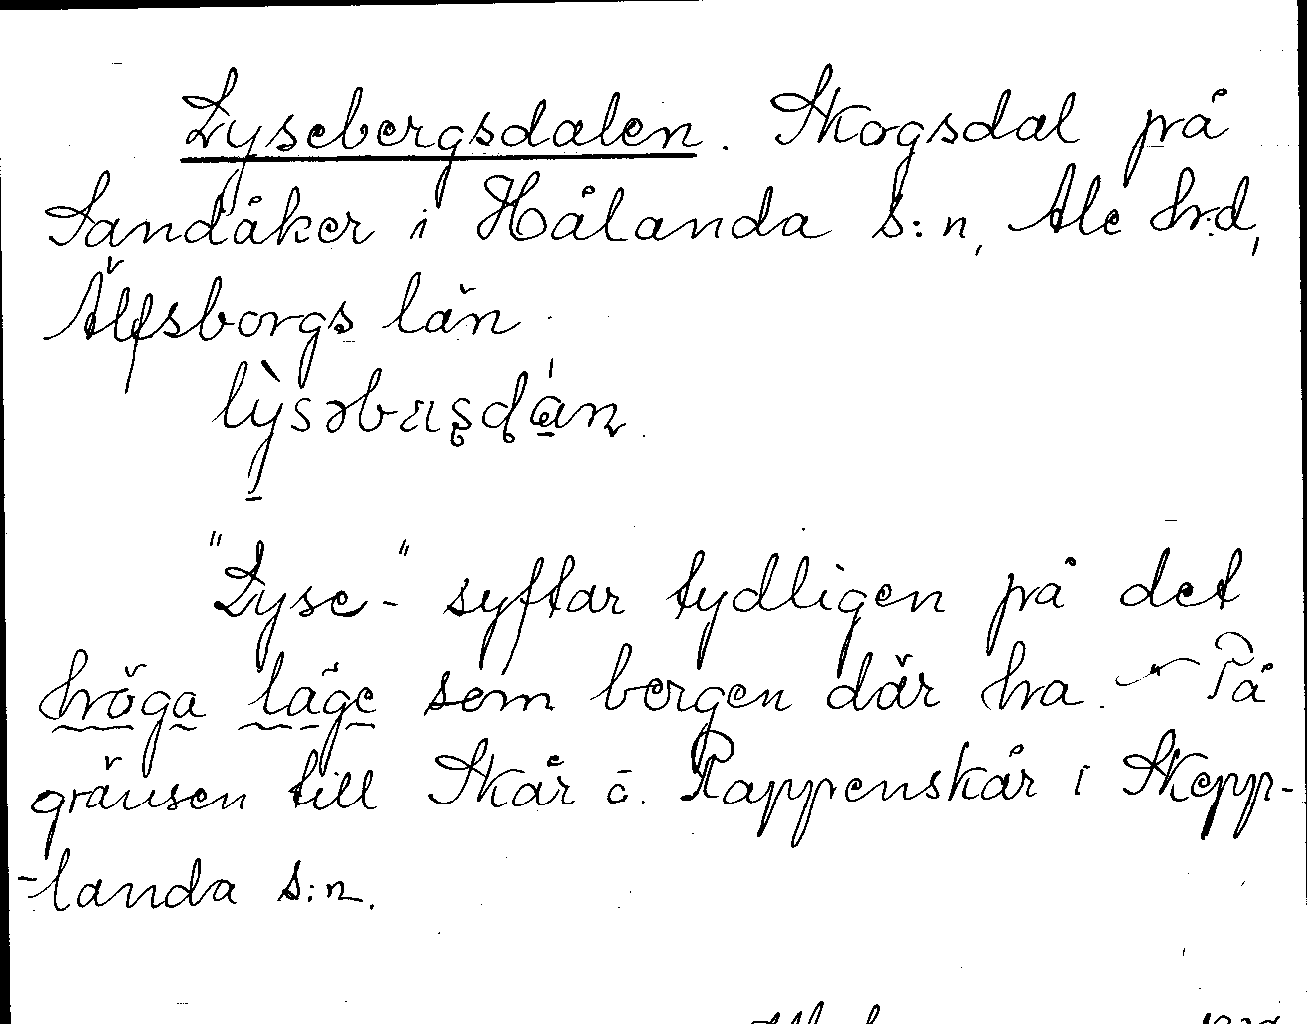 Lysebergsdalen. Skogsdal på
Sandåker i Hålanda s:n, Ale hrd,
Älfsborgs län.
"Lyse-" syftar tydligen på det
höga läge som bergen där ha. — På
gränsen till Skår o. Rappenskår i Skepp-
-landa s:n.